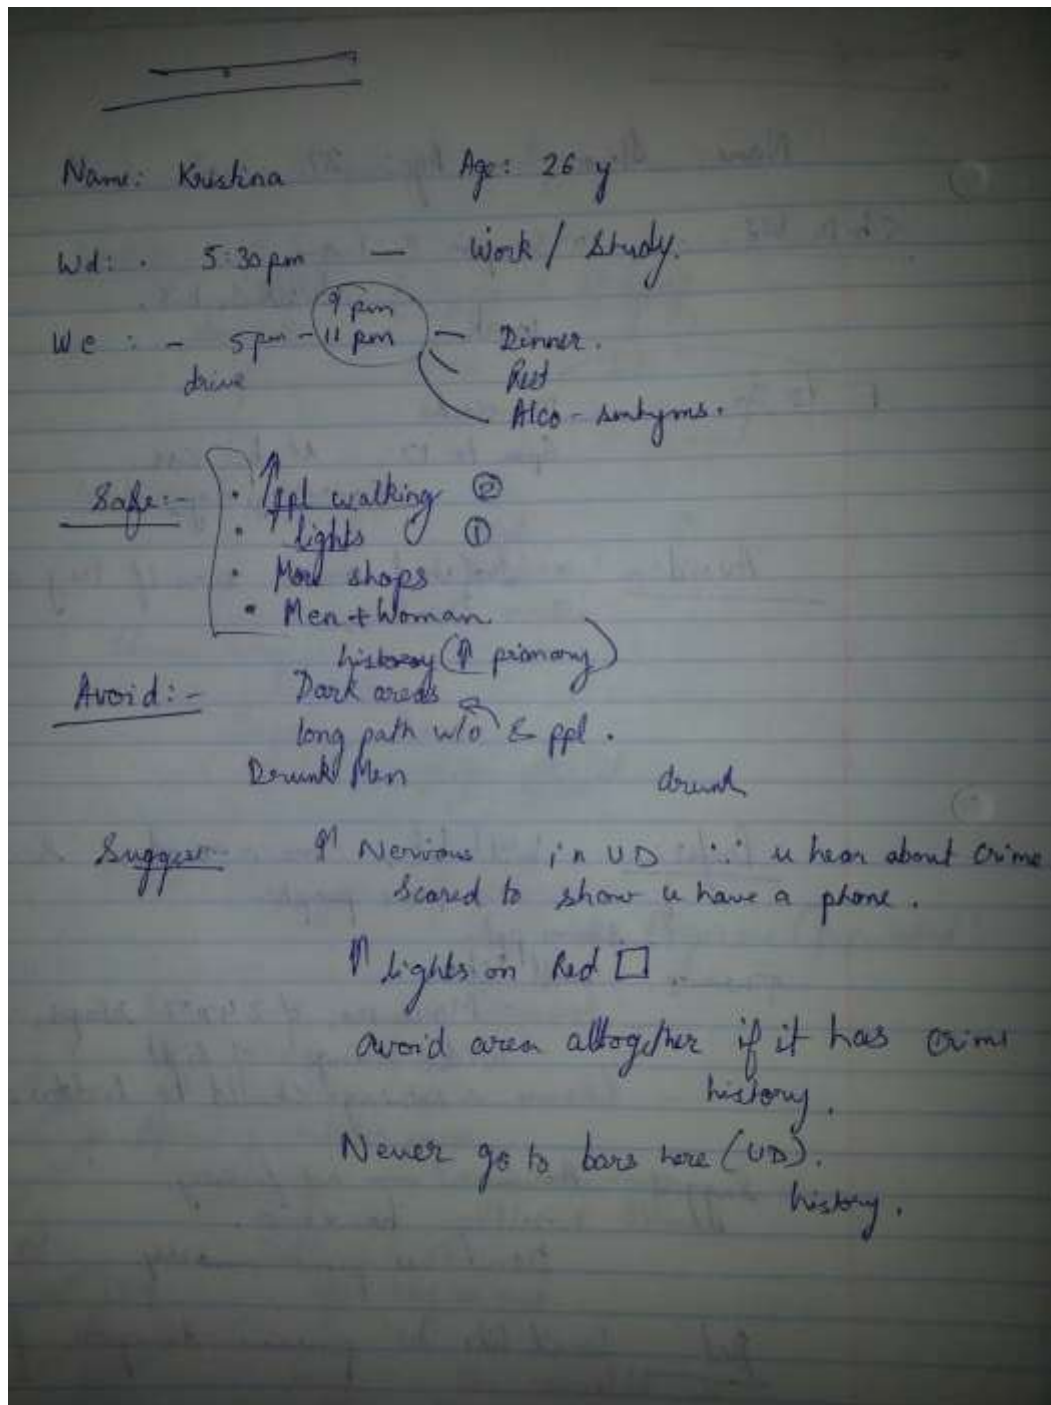 Name: Kristina Age: 26 y
Wd: · 5:30pm — Work / Study.
9 pm
We : - 5pm - 11 pm — Dinner.
drive Rest
Alco - smtyms.
Safe:- · ↑ ppl walking ②
· ↑ lights ①
· More shops
· Men + Woman
history (↑ primary)
Avoid:- Dark areas
long path w/o & ppl.
Drunk Men drunk
Suggest ↑ Nervious in UD ∵ u hear about crime
scared to show u have a phone.
↑ lights on Red □
avoid area altogether if it has crime
history.
Never go to bars here (UD).
history.